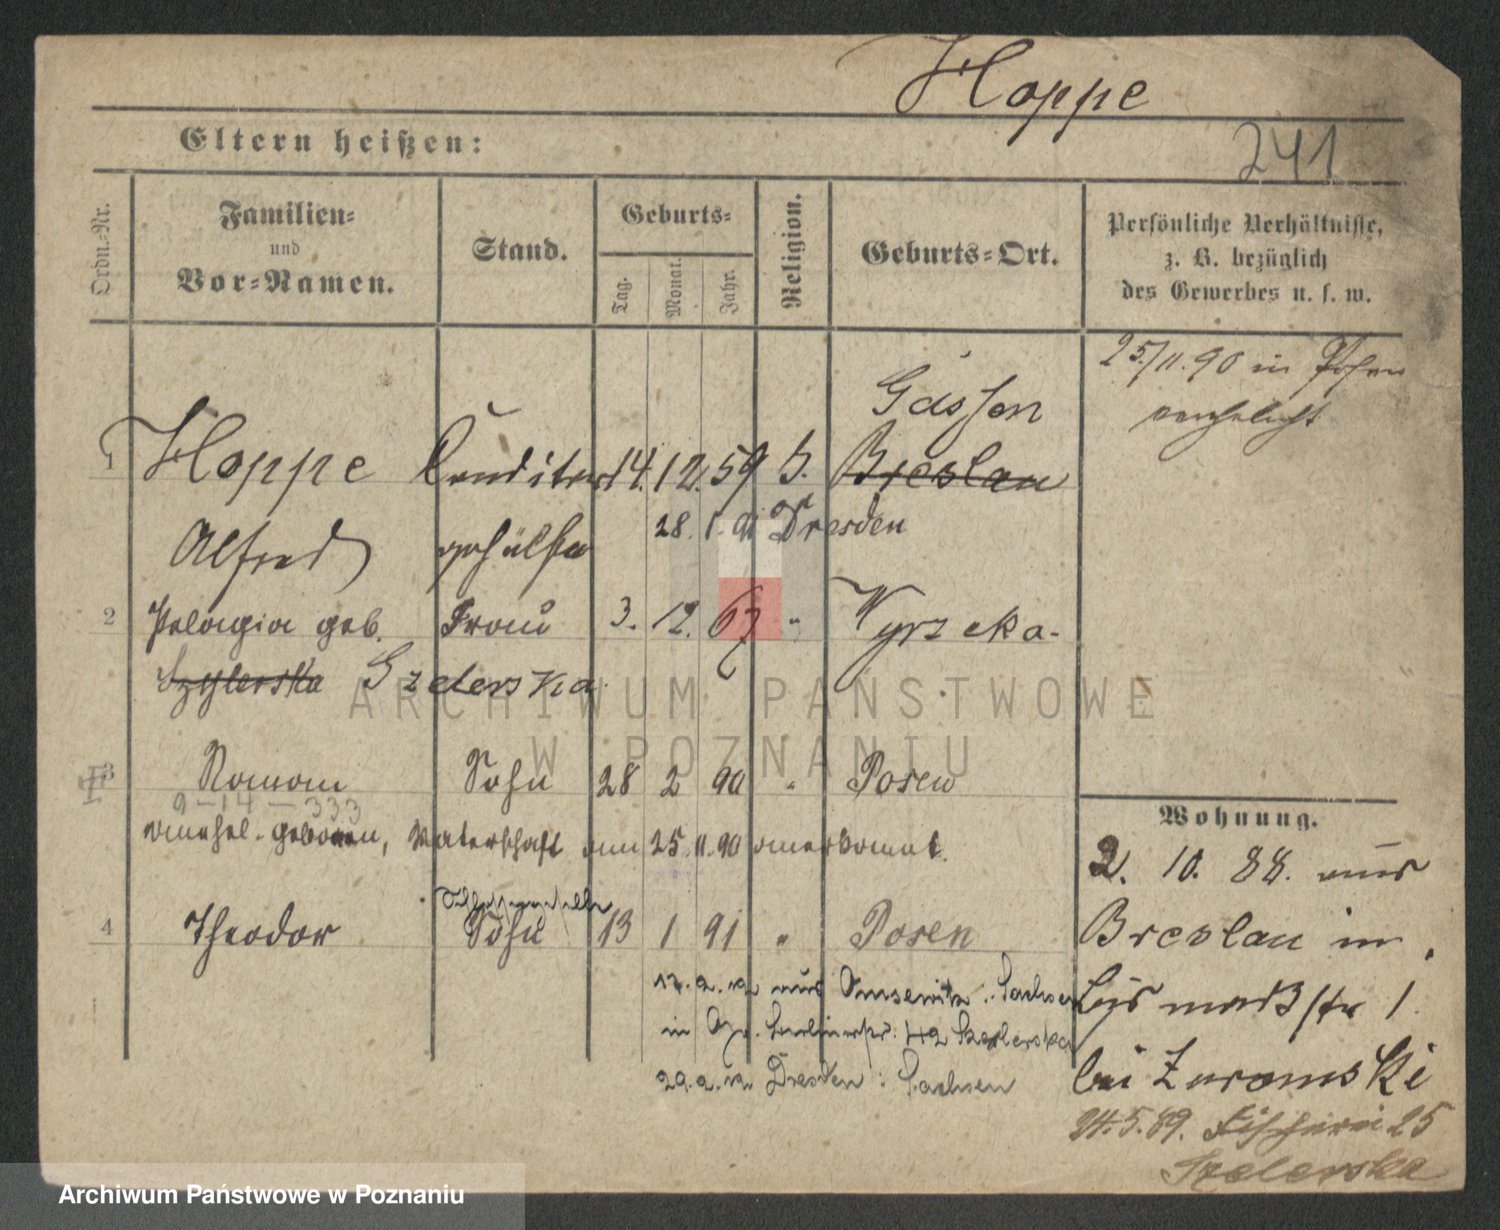 Hoppe
241
Eltern heißen:
Ordn.-Nr.
Familien-
und
Vor-Namen.
Stand.
Geburts-
Tag.
Monat.
Jahr.
Religion.
Geburts-Ort.
Persönliche Verhältnisse,
z. B. bezüglich
des Gewerbes u. s. w.
25/11.90 in Posen
verehelicht
Gassen
1 Hoppe Conditor 14. 12. 59 Breslau
Alfred gehülfe 28. 1. 91 Dresden
2 Pelagia geb. Frau 3. 12. 67 " Wyrzeka.
Szylerska Szelerska
ARCHIWUM PAŃSTWOWE
W POZNANIU
3 Roman Sohn 28 2 90 " Posen
9-14-333
unehel. geboren, Vaterschaft am 25.11.90 anerkannt.
4 Theodor Sohn 13 1 91 " Posen
aus : Sachsen
in 42 Szelerska
29.2.12 Dresden : Sachsen
Wohnung.
2. 10. 88. aus
Breslau in
Bismarckstr 1.
bei Zuromski
24.5.89. Fischerei 25
Szelerska
Archiwum Państwowe w Poznaniu